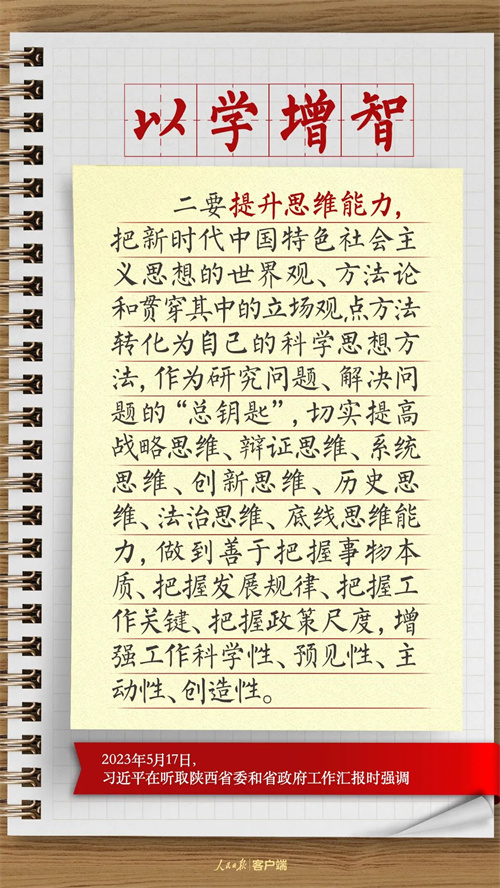 以学增智
二要提升思维能力，
把新时代中国特色社会主
义思想的世界观、方法论
和贯穿其中的立场观点方法
转化为自己的科学思想方
法，作为研究问题、解决问
题的“总钥匙”，切实提高
战略思维、辩证思维、系统
思维、创新思维、历史思
维、法治思维、底线思维能
力，做到善于把握事物本
质、把握发展规律、把握工
作关键、把握政策尺度，增
强工作科学性、预见性、主
动性、创造性。
2023年5月17日，
习近平在听取陕西省委和省政府工作汇报时强调
人民日报 客户端